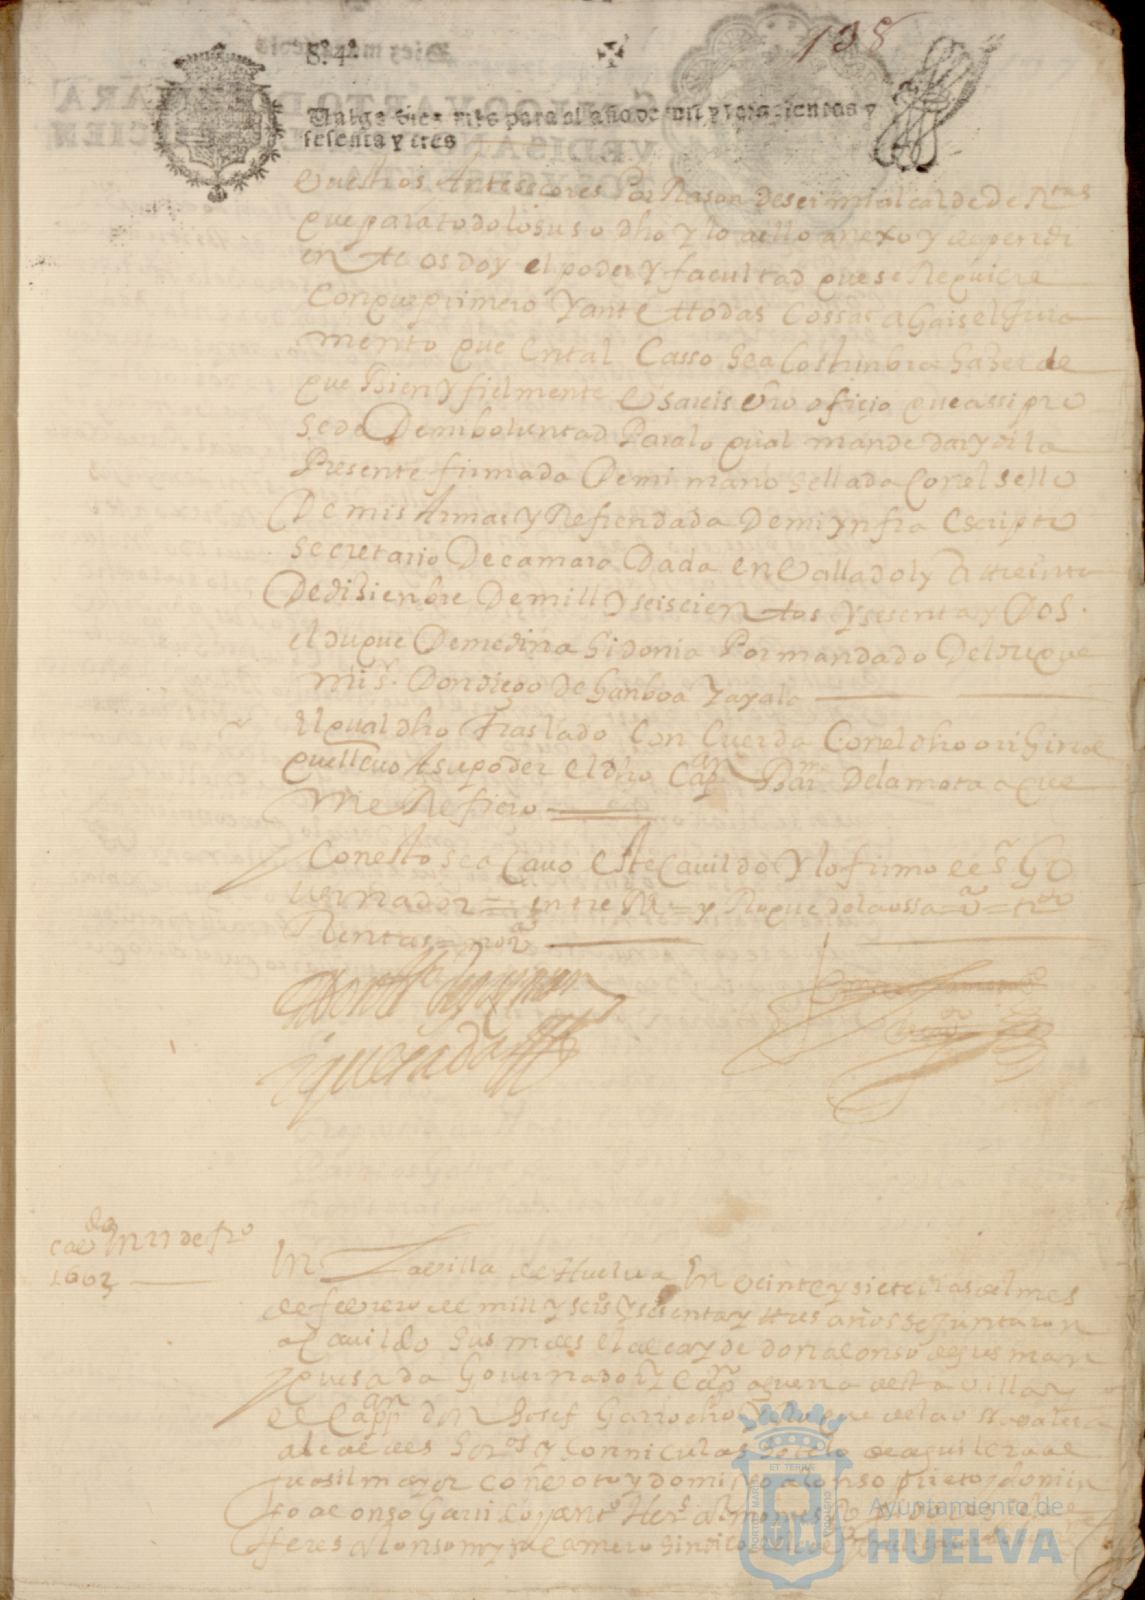 138
8º 4º
Valga diez mrs para el año de mil y seiscientos y
sesenta y tres
Vuestros Antessesores Por Rason de ser mi alcalde de Rtas
que para todo lo suso dho y lo a ello anexo y dependi
en te os doy el poder y facultad que se Requiere
Con que primero y ante ttodas Cossas agais el Jura
mento que en tal Casso sea Costunbre hazer de
que bien y fielmente Usareis vro oficio que assi pro
sede De mi boluntad Para lo qual mande dar y di la
Presente firmada De mi mano sellada Con el sello
De mis Armas y Refrendada De mi ynfra escripto
secretario De camara Dada en Valladoly A treinta
De disienbre De mill y seiscien tos y sesenta y Dos.
el duque De medina sidonia Por mandado Del duque
mi sr. Don diego de Ganboa y ayala
El qual dho traslado Con Cuerda Con el dho orijinal
que llevo A su poder el dho Cappn Barme De la mota a que
me Refiero
Con esto se a Cavo este Cavildo y lo firmo el sr Go
vernador = entre Rs = y Roque de la ossa =
Rentas =
quesada
cavdo En 27 de fro
1663
En La villa de Huelva En veinte y siete dias del mes
de febrero de mill y seisos y sesenta y tres años se Juntaron
a Cavildo sus mdes el alcayde don alonso de gusman
quesada Governador y Cappn a guerra desta villa y
el Cappn don Josef Garrocho y Roque de la o
alcaldes hordos y Cornieles Sotelo de aguilera al
guasil mayor con voto y domingo alonso prieto domin
go alonso Garrido
feres alonso
Ayuntamiento de
HUELVA